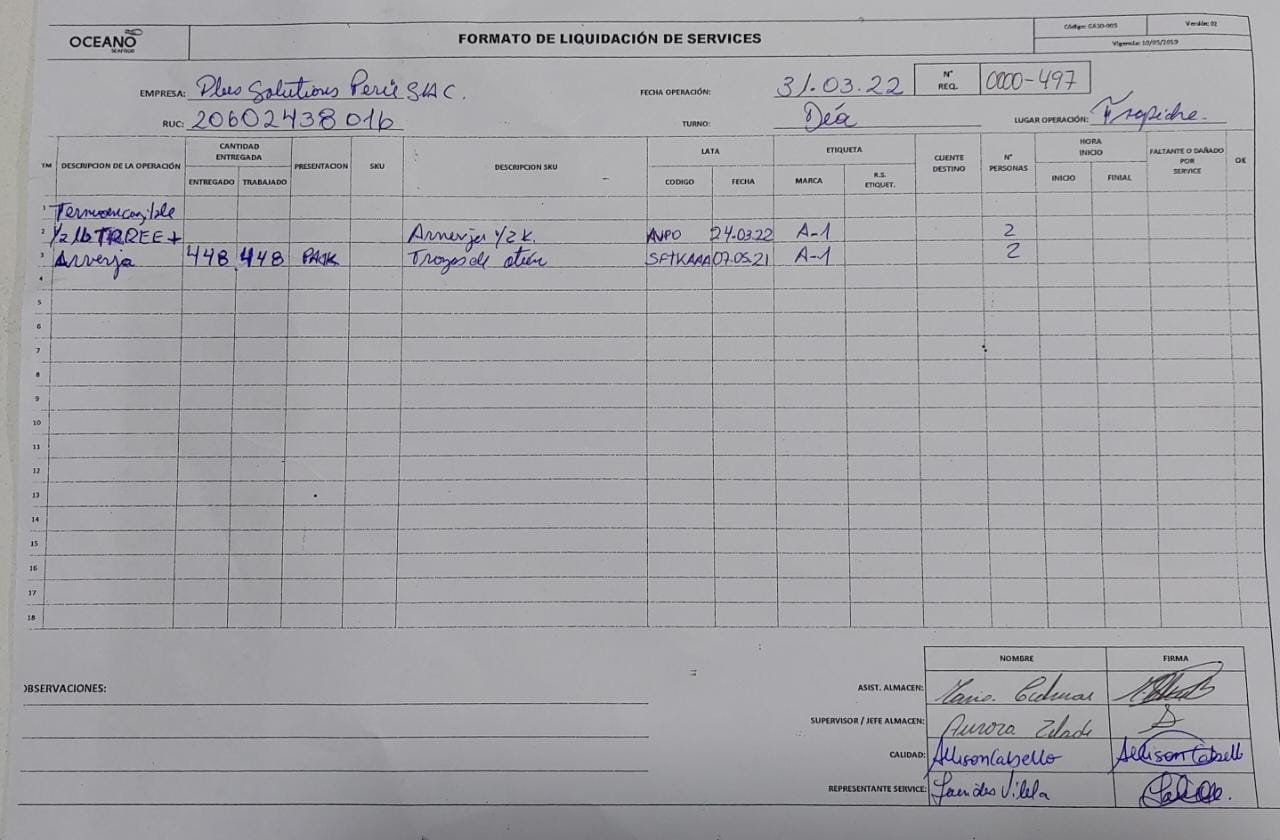 OCEANO
SEAFOOD
FORMATO DE LIQUIDACIÓN DE SERVICES
Código: CASO-005
Versión: 02
Vigencia: 10/05/2019
EMPRESA: Plus Solutions Perú SAC.
FECHA OPERACIÓN: 31.03.22
N° REQ. 0000-497
RUC: 20602438016
TURNO: Día
LUGAR OPERACIÓN: Trapiche.
ITM DESCRIPCION DE LA OPERACIÓN CANTIDAD ENTREGADA PRESENTACION SKU DESCRIPCION SKU LATA ETIQUETA CLIENTE DESTINO N° PERSONAS HORA INICIO FALTANTE O DAÑADO POR SERVICE OK
ENTREGADO TRABAJADO CODIGO FECHA MARCA R.S. ETIQUET. INICIO FINIAL
1 Termoencogible
2 1/2 lb TRREE + Arverja 1/2 K. AVPO 24.03.22 A-1 2
3 Arverja 448 448 PACK Trozos de atún SFTKAAA 07.05.21 A-1 2
4
5
6
7
8
9
10
11
12
13
14
15
16
17
18
NOMBRE FIRMA
OBSERVACIONES:
ASIST. ALMACEN: Mario
SUPERVISOR / JEFE ALMACEN: Aurora
CALIDAD: Allison Cabello Allison Cabello
REPRESENTANTE SERVICE: Vilela